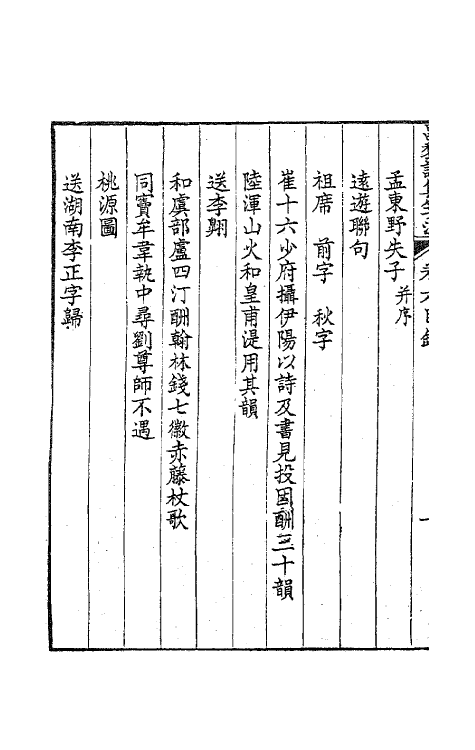 孟東野失子并序
遠遊聯句
祖席 前字 秋字
崔十六少府攝伊陽以詩及書見投因酬三十韻
陸渾山火和皇甫湜用其韻
送李翺
和虞部盧四汀酬翰林錢七徽赤藤杖歌
同竇牟韋執中尋劉尊師不遇
桃源圖
送湖南李正字歸